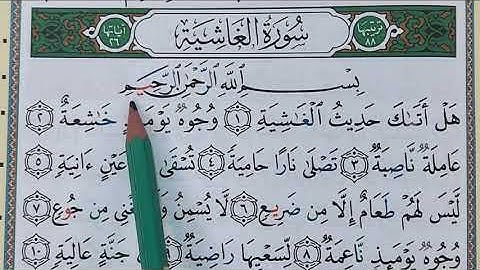 ترتيبها ٨٨ سُورَةُ الْغَاشِيَةِ آياتها ٢٦
بِسْمِ اللَّهِ الرَّحْمَٰنِ الرَّحِيمِ
هَلْ أَتَىٰكَ حَدِيثُ الْغَٰشِيَةِ ١ وُجُوهٌ يَوْمَئِذٍ خَٰشِعَةٌ ٢
عَامِلَةٌ نَّاصِبَةٌ ٣ تَصْلَىٰ نَارًا حَامِيَةً ٤ تُسْقَىٰ عَيْنٍ ءَانِيَةٍ ٥
لَّيْسَ لَهُمْ طَعَامٌ إِلَّا مِن ضَرِيعٍ ٦ لَّا يُسْمِنُ مِن جُوعٍ ٧
وُجُوهٌ يَوْمَئِذٍ نَّاعِمَةٌ ٨ لِّسَعْيِهَا رَاضِيَةٌ ٩ جَنَّةٍ عَالِيَةٍ ١٠